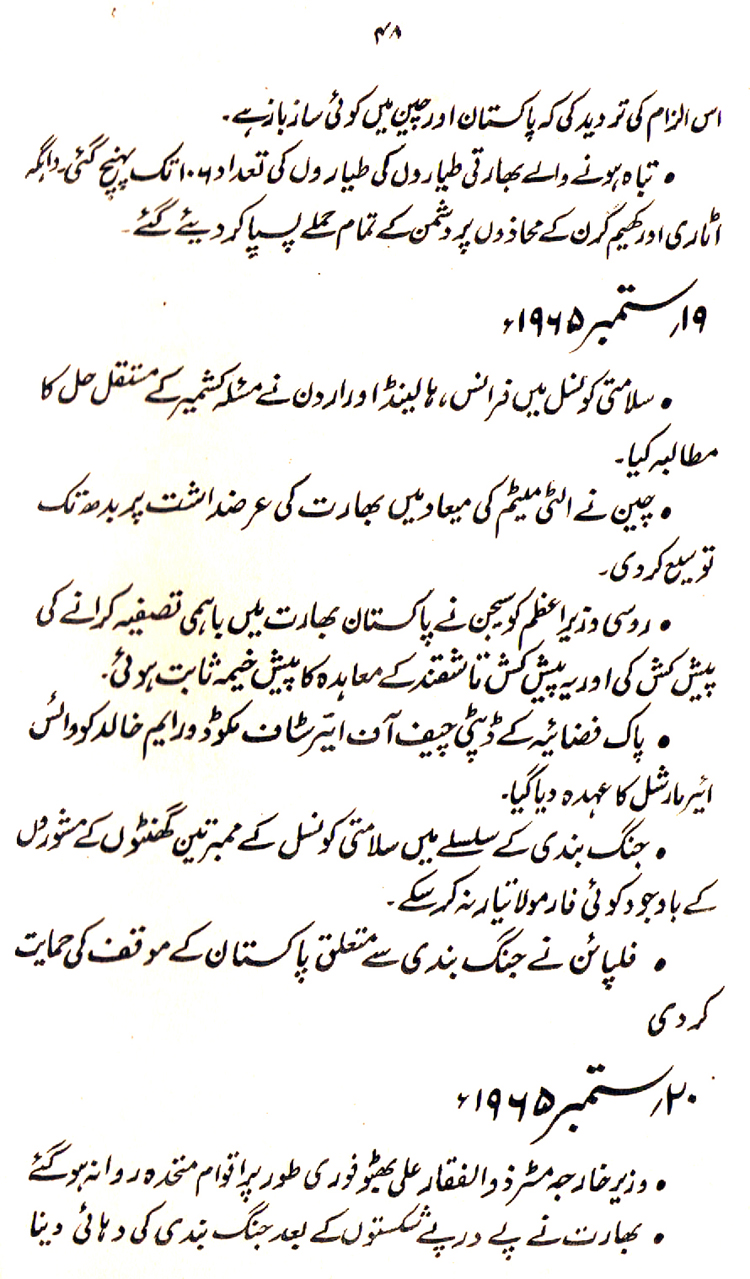 ۴۸
اس الزام کی تردید کی کہ پاکستان اور چین میں کوئی ساز باز ہے۔
• تباہ ہونے والے بھارتی طیاروں کی طیاروں کی تعداد ۱۰۶ تک پہنچ گئی۔ واہگہ
اٹاری اور کھیم کرن کے محاذوں پر دشمن کے تمام حملے پسپا کر دیئے گئے۔
۱۹؍ ستمبر ۱۹۶۵ء
• سلامتی کونسل میں فرانس، ہالینڈ اور اردن نے مسئلہ کشمیر کے مستقل حل کا
مطالبہ کیا۔
• چین نے الٹی میٹم کی میعاد میں بھارت کی عرضداشت پر بدھ تک
توسیع کر دی۔
• روسی وزیراعظم کوسیجن نے پاکستان بھارت میں باہمی تصفیہ کرانے کی
پیش کش کی اور یہ پیش کش تاشقند کے معاہدہ کا پیش خیمہ ثابت ہوئی۔
• پاک فضائیہ کے ڈپٹی چیف آف ائیر سٹاف مکوڈور ایم خالد کو وائس
ائیر مارشل کا عہدہ دیا گیا۔
• جنگ بندی کے سلسلے میں سلامتی کونسل کے ممبر تین گھنٹوں کے مشوروں
کے باوجود کوئی فارمولا تیار نہ کر سکے۔
• فلپائن نے جنگ بندی سے متعلق پاکستان کے موقف کی حمایت
کر دی
۲۰؍ ستمبر ۱۹۶۵ء
• وزیر خارجہ مسٹر ذوالفقار علی بھٹو فوری طور پر اقوام متحدہ روانہ ہو گئے
• بھارت نے پے در پے شکستوں کے بعد جنگ بندی کی دہائی دینا